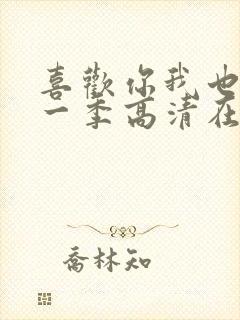 喜歡你我也
一季高清在
喬林知